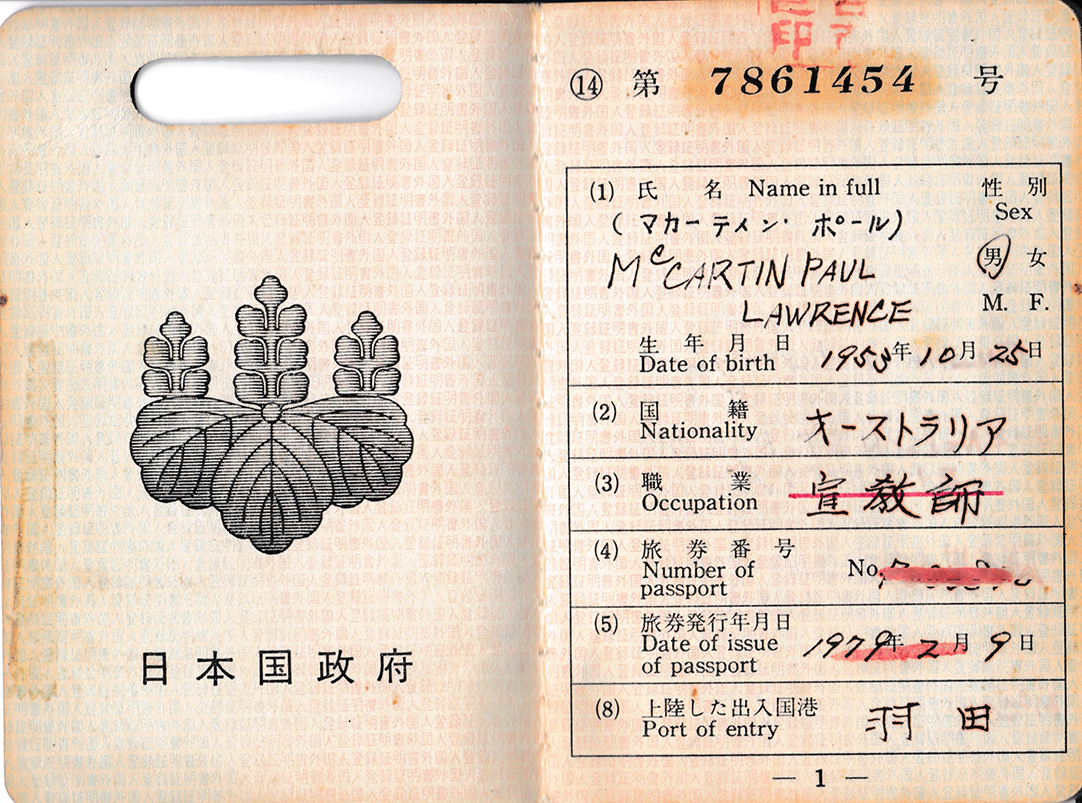 日本国政府
⑭ 第 7861454 号
(1) 氏 名 Name in full
性 別
Sex
(マカーティン・ポール)
McCARTIN PAUL
LAWRENCE
男 女
M. F.
生 年 月 日
Date of birth
1953年10月25日
(2) 国 籍
Nationality
オーストラリア
(3) 職 業
Occupation
宣教師
(4) 旅 券 番 号
Number of
passport
No.
(5) 旅券発行年月日
Date of issue
of passport
1979年2月9日
(8) 上陸した出入国港
Port of entry
羽田
— 1 —